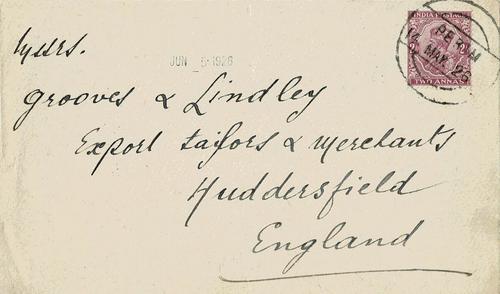 Messrs.
JUN 5 1926
Grooves & Lindley
Export tailors & merchants
Huddersfield
England
INDIA POSTAGE
TWO ANNAS
PERIM
14 MAY. 26